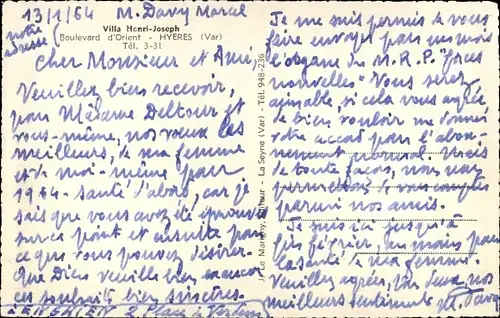 13/1/64 M. Davy Marcel
notre
adresse
Villa Henri-Joseph
Boulevard d'Orient - HYERES (Var)
Tél. 3-31
Cher Monsieur et Ami,
Veuillez bien recevoir,
pour Madame Deltour et
vous-même, nos vœux les
meilleurs, de ma femme
et de moi-même pour
1964 - santé d'abord, car je
sais que vous avez été éprouvés
sur ce point et ensuite pour
ce que vous pouvez désirer.
Que Dieu veuille bien exaucer
ces souhaits bien sincères.
à 2 Place de Verdun
J. Le Marigny, Editeur - La Seyne (Var) - Tél. 948-236
Je me suis permis de vous
faire envoyer pour un mois
l'organe du M.R.P. "Forces
nouvelles" Vous serez
aimable si cela vous agrée,
de bien vouloir me donner
votre accord pour l'abon-
nement normal. Mais
de toute façon, nous nous
permettons de vous compter
parmi nos amis.
Je suis ici jusqu'à
février, au moins pour
la santé de ma femme.
Veuillez agréer, tous deux, nos
meilleurs sentiments M. Davy